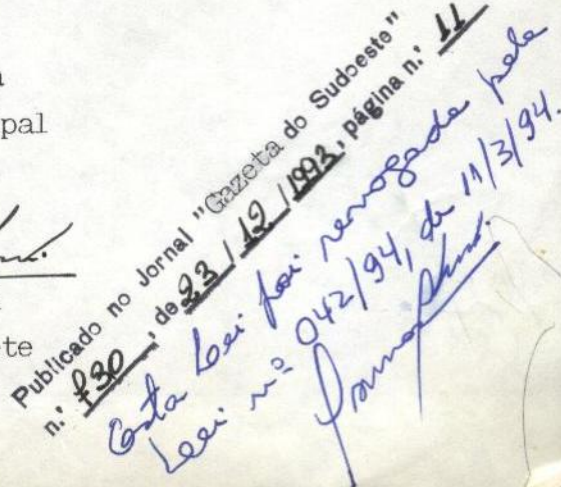 pal
te
Publicado no Jornal "Gazeta do Sudoeste"
n.º 730, de 23 / 12 / 1993, página n.º 11
Esta Lei foi revogada pela
Lei nº 042/94, de 11/3/94.